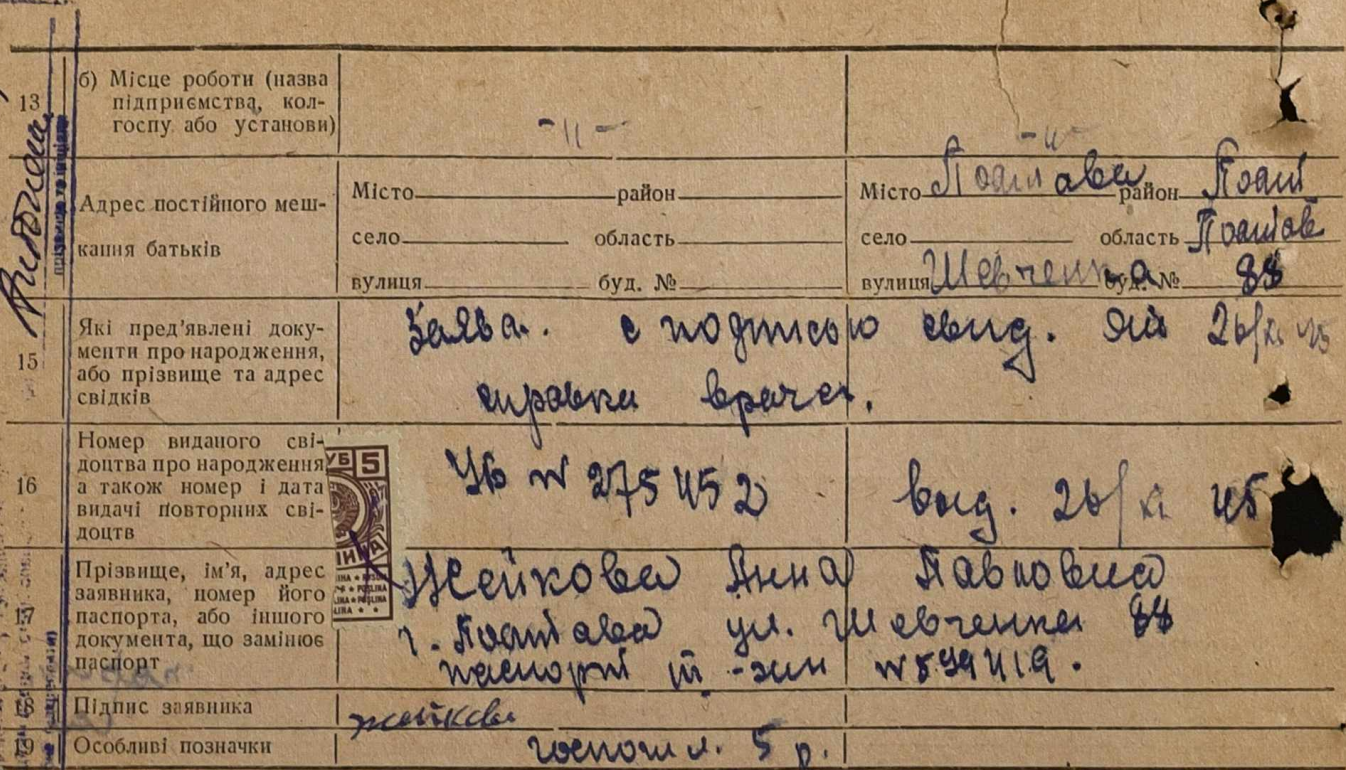 13 б) Місце роботи (назва
підприємства, кол-
госпу або установи)
-"- -"-
Адрес постійного меш-
кання батьків
Місто район Місто Полтава район Полт
село область село область Полтав
вулиця буд. № вулиця Шевченка буд. № 88
15 Які пред'явлені доку-
менти про народження,
або прізвище та адрес
свідків
Заява. с подписью свид. 26/
справка врача.
16 Номер виданого сві-
доцтва про народження
а також номер і дата
видачі повторних сві-
доцтв
УБ 5
№ 275452 выд. 26/XI 45
17 Прізвище, ім'я, адрес
заявника, номер його
паспорта, або іншого
документа, що замінює
паспорт
Жейкова Анна Павловна
г. Полтава ул. Шевченка 88
паспорт № 599419.
18 Підпис заявника
Жейкова
19 Особливі позначки
госпошл. 5 р.